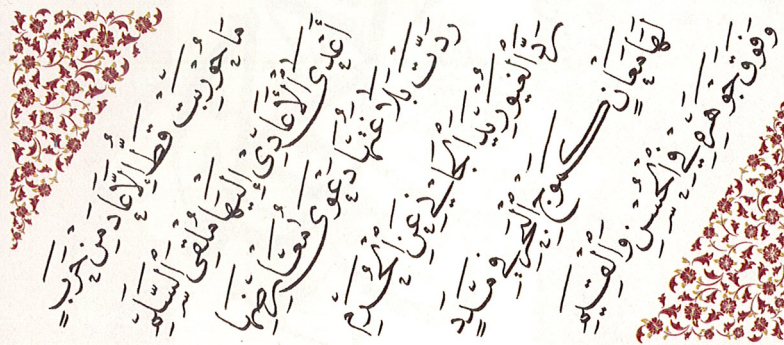 مَا حُورِبَتْ قَطُّ إِلَّا عَادَ مِنْ حَرَبٍ
أَعْدَى الْأَعَادِي إِلَيْهَا مُلْقِيَ السَّلَمِ
رَدَّتْ بَلَاغَتُهَا دَعْوَى مُعَارِضِهَا
رَدَّ الْغَيُورِ يَدَ الْجَانِي عَنِ الْحُرَمِ
لَهَا مَعَانٍ كَمَوْجِ الْبَحْرِ فِي مَدَدٍ
وَفَوْقَ جَوْهَرِهِ فِي الْحُسْنِ وَالْقِيَمِ